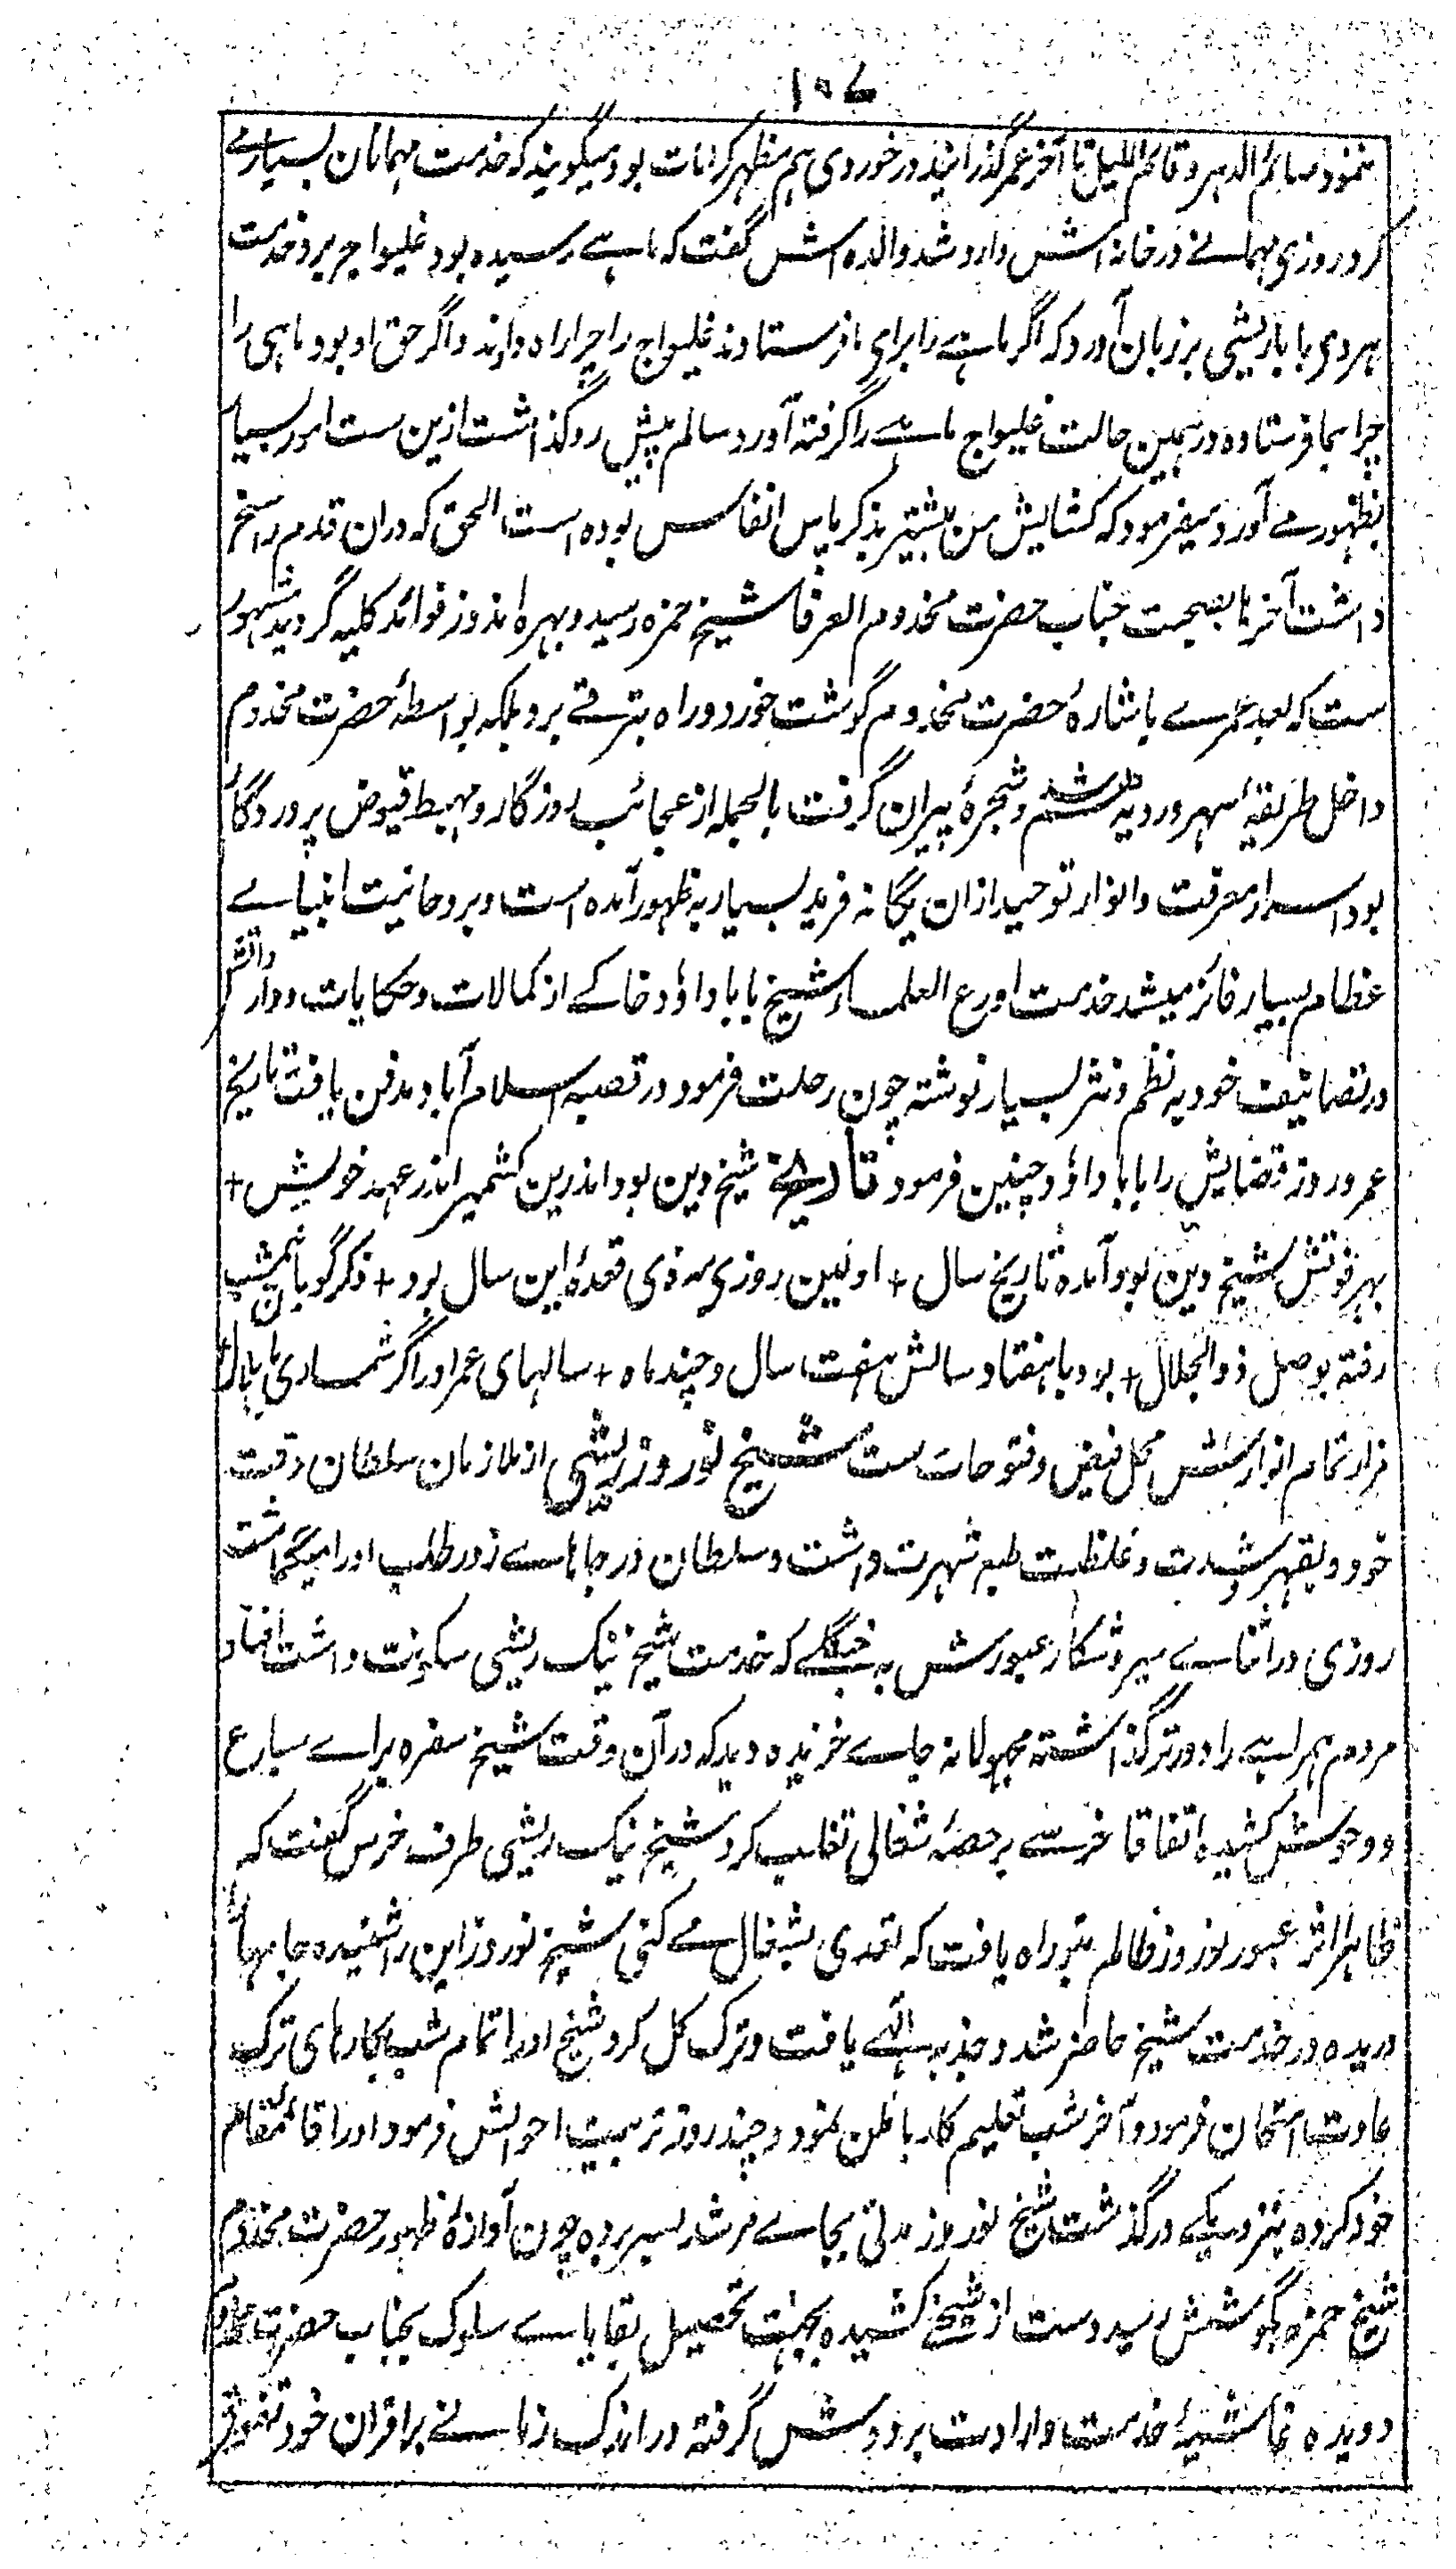 ۱۰۷
ننمود صائم الدهر و قائم اللیل تا آخر عمر گذرانید در خوردی هم مظهر کرامات بود میگویند که خدمت مهمانان بسیارے
کرد روزی مهمانے در خانه اش وارد شد والده اش گفت که ماهے رسیده بود غلیواج برد خدمت
هردی بابا ریشی بر زبان آورد که اگر ماهے را برای ما فرستادند غلیواج را چرا راه دادند و اگر حق او بود ماهی را
چرا بما فرستاده در همین حالت غلیواج ماهے را گرفته آورد سالم پیش رو گذاشت ازین ست امور بسیار
بظهور مے آورد و میفرمود که کشایش من بیشتر بذکر پاس انفاس بوده است الحق که دران قدم راسخ
داشت آخرها بصحبت جناب حضرت مخدوم العرفا شیخ حمزه رسید و بهره اندوز فوائد کلیه گردید مشهور
ست که بعد عمرے باشارهٔ حضرت مخدوم گوشت خورد و راه بترقے برد بلکه بواسطهٔ حضرت مخدوم
داخل طریقهٔ سهروردیه هم شد و شجرهٔ پیران گرفت بالجمله از عجائب روزگار و مهبط فیوض پروردگار
بود اسرار معرفت و انوار توحید ازان یگانه فرید بسیار به ظهور آمده است و بروحانیت انبیاے
عظام بسیار فائز میشد خدمت اورع العلماء شیخ بابا داؤد خاکے از کمالات و حکایات و واردانش
در تصانیف خود به نظم و نثر بسیار نوشته چون رحلت فرمود در قصبه اسلام آباد مدفن یافت تاریخ
عمر و روز قضایش را بابا داؤد چنین فرمود تاریخ شیخ دین بود اندرین کشمیر اندر عهد خویش +
بهر فوتش شیخ دین بود آمده تاریخ سال + اولین روزی مه ذی قعدهٔ این سال بود + ذکر گویان نیمشب
رفته بوصل ذوالجلال + بود با هفتاد سالش هفت سال و چند ماه + سالهای عمر او را گر شماری با بال
مزار تمام انوارش محل فیض و فتوحات ست شیخ نوروز ریشی از ملازمان سلطان وقت
خود و بقهر و شدت و غلظت طبع شهرت داشت و سلطان در جاهاے زور طلب او را میگماشت
روزی در اثناے سیر و شکار عبورش به جنگلے که خدمت شیخ نیک ریشی سکونت داشت افتاد
مردم همراہے را دورتر گذاشته مجهولانه جاے خزیده دید که در آن وقت شیخ سفره براے سباع
و وحوش کشیده اتفاقا خرسے بر حصهٔ شغالی تغلب کرد شیخ نیک ریشی طرف خرس گفت که
ظاهرا اثر عبور نوروز ظالم بتو راه یافت که تعدی بشغال مے کنی شیخ نوروز این را شنیده جامها
دریده در خدمت شیخ حاضر شد و جذبه الٰہے یافت و ترک کل کرد شیخ او را تمام شب بکارهای ترک
عادت امتحان فرمود و آخر شب تعلیم کار باطن نمود و چند روزه تربیت احوالش فرمود او را قائم مقام
خود کرده بنزدیکے درگذشت شیخ نوروز مدتی بجاے مرشد بسر برده چون آوازهٔ ظهور حضرت مخدوم
شیخ حمزه بگوشش رسید دست از شیخے کشیده بجهت تحصیل بقایاے سلوک بجناب حضرت مخدوم
دویده غاشیهٔ خدمت و ارادت بر دوش گرفته در اندک زمانے بر اقران خود تفوق